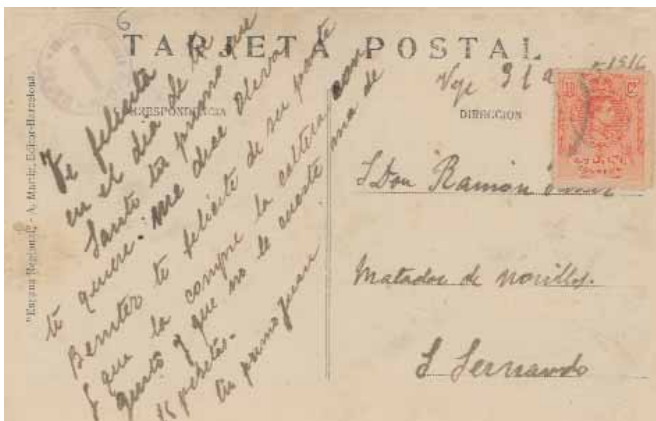 6
TARJETA POSTAL
CORRESPONDENCIA
DIRECCION
"España Regional". - A. Martín, Editor-Barcelona.
Te felicita
en el dia de tu
Santo tu primo que
te quiere. me dice
Benitez te felicite de su parte
y que la compre la
gusto y que no le cueste mas de
15 pesetas.
tu primo Juan
1916
S Don Ramón
Matador de novillos.
S Fernando